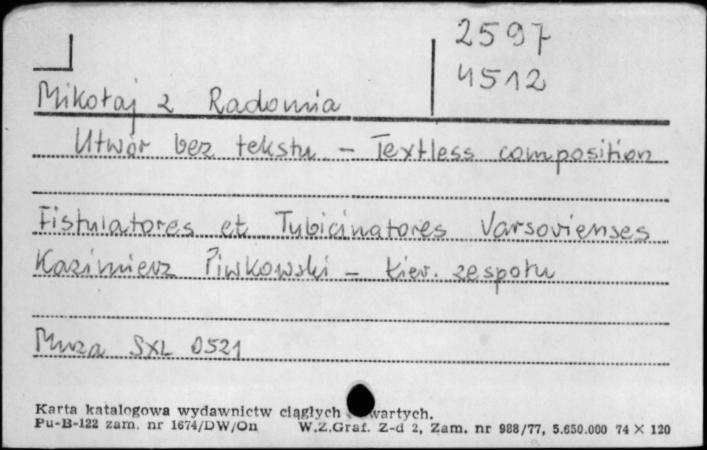 2597
4512
Mikołaj z Radomia
Utwór bez tekstu – Textless composition
Fistulatores et Tubicinatores Varsovienses
Kazimierz Piwkowski – kier. zespołu
Muza SXL 0521
Karta katalogowa wydawnictw ciągłych wartych.
Pu-B-122 zam. nr 1674/DW/On W.Z.Graf. Z-d 2, Zam. nr 988/77, 5.650.000 74 × 120